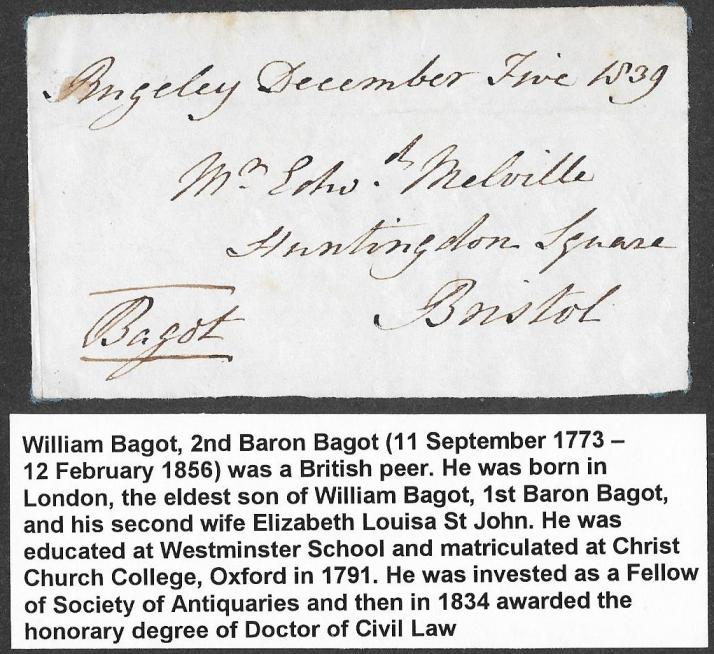 Rugeley December Five 1839
Mrs Edwd. Melville
Huntingdon Square
Bristol
Bagot
William Bagot, 2nd Baron Bagot (11 September 1773 –
12 February 1856) was a British peer. He was born in
London, the eldest son of William Bagot, 1st Baron Bagot,
and his second wife Elizabeth Louisa St John. He was
educated at Westminster School and matriculated at Christ
Church College, Oxford in 1791. He was invested as a Fellow
of Society of Antiquaries and then in 1834 awarded the
honorary degree of Doctor of Civil Law